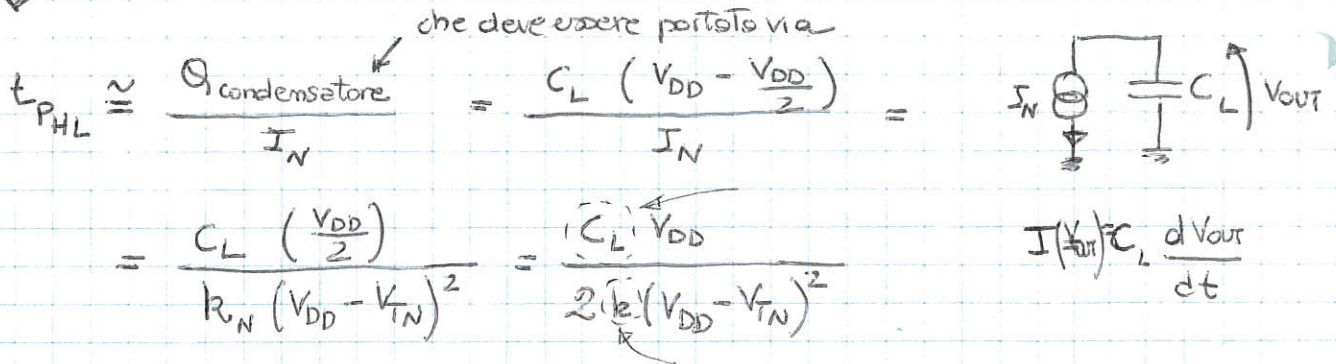 che deve essere portato via
t_PHL ≅ Q condensatore / I_N = C_L (V_DD - V_DD/2) / I_N =
I_N C_L V_OUT
= C_L (V_DD/2) / k_N (V_DD - V_TN)^2 = C_L V_DD / 2 k (V_DD - V_TN)^2
I(V_OUT) = C_L dV_OUT / dt